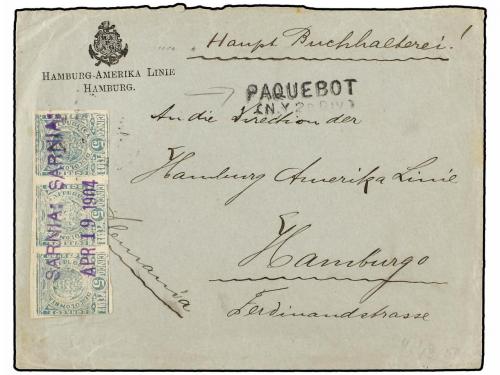 Haupt Buchhalterei!
HAMBURG-AMERIKA LINIE
HAMBURG.
PAQUEBOT
(N.Y. 2D DIV)
An die Direction der
Hamburg Amerika Linie
Hamburgo
Ferdinandstrasse
Alemania
SARNIA: SARNIA:
APR 19 1904